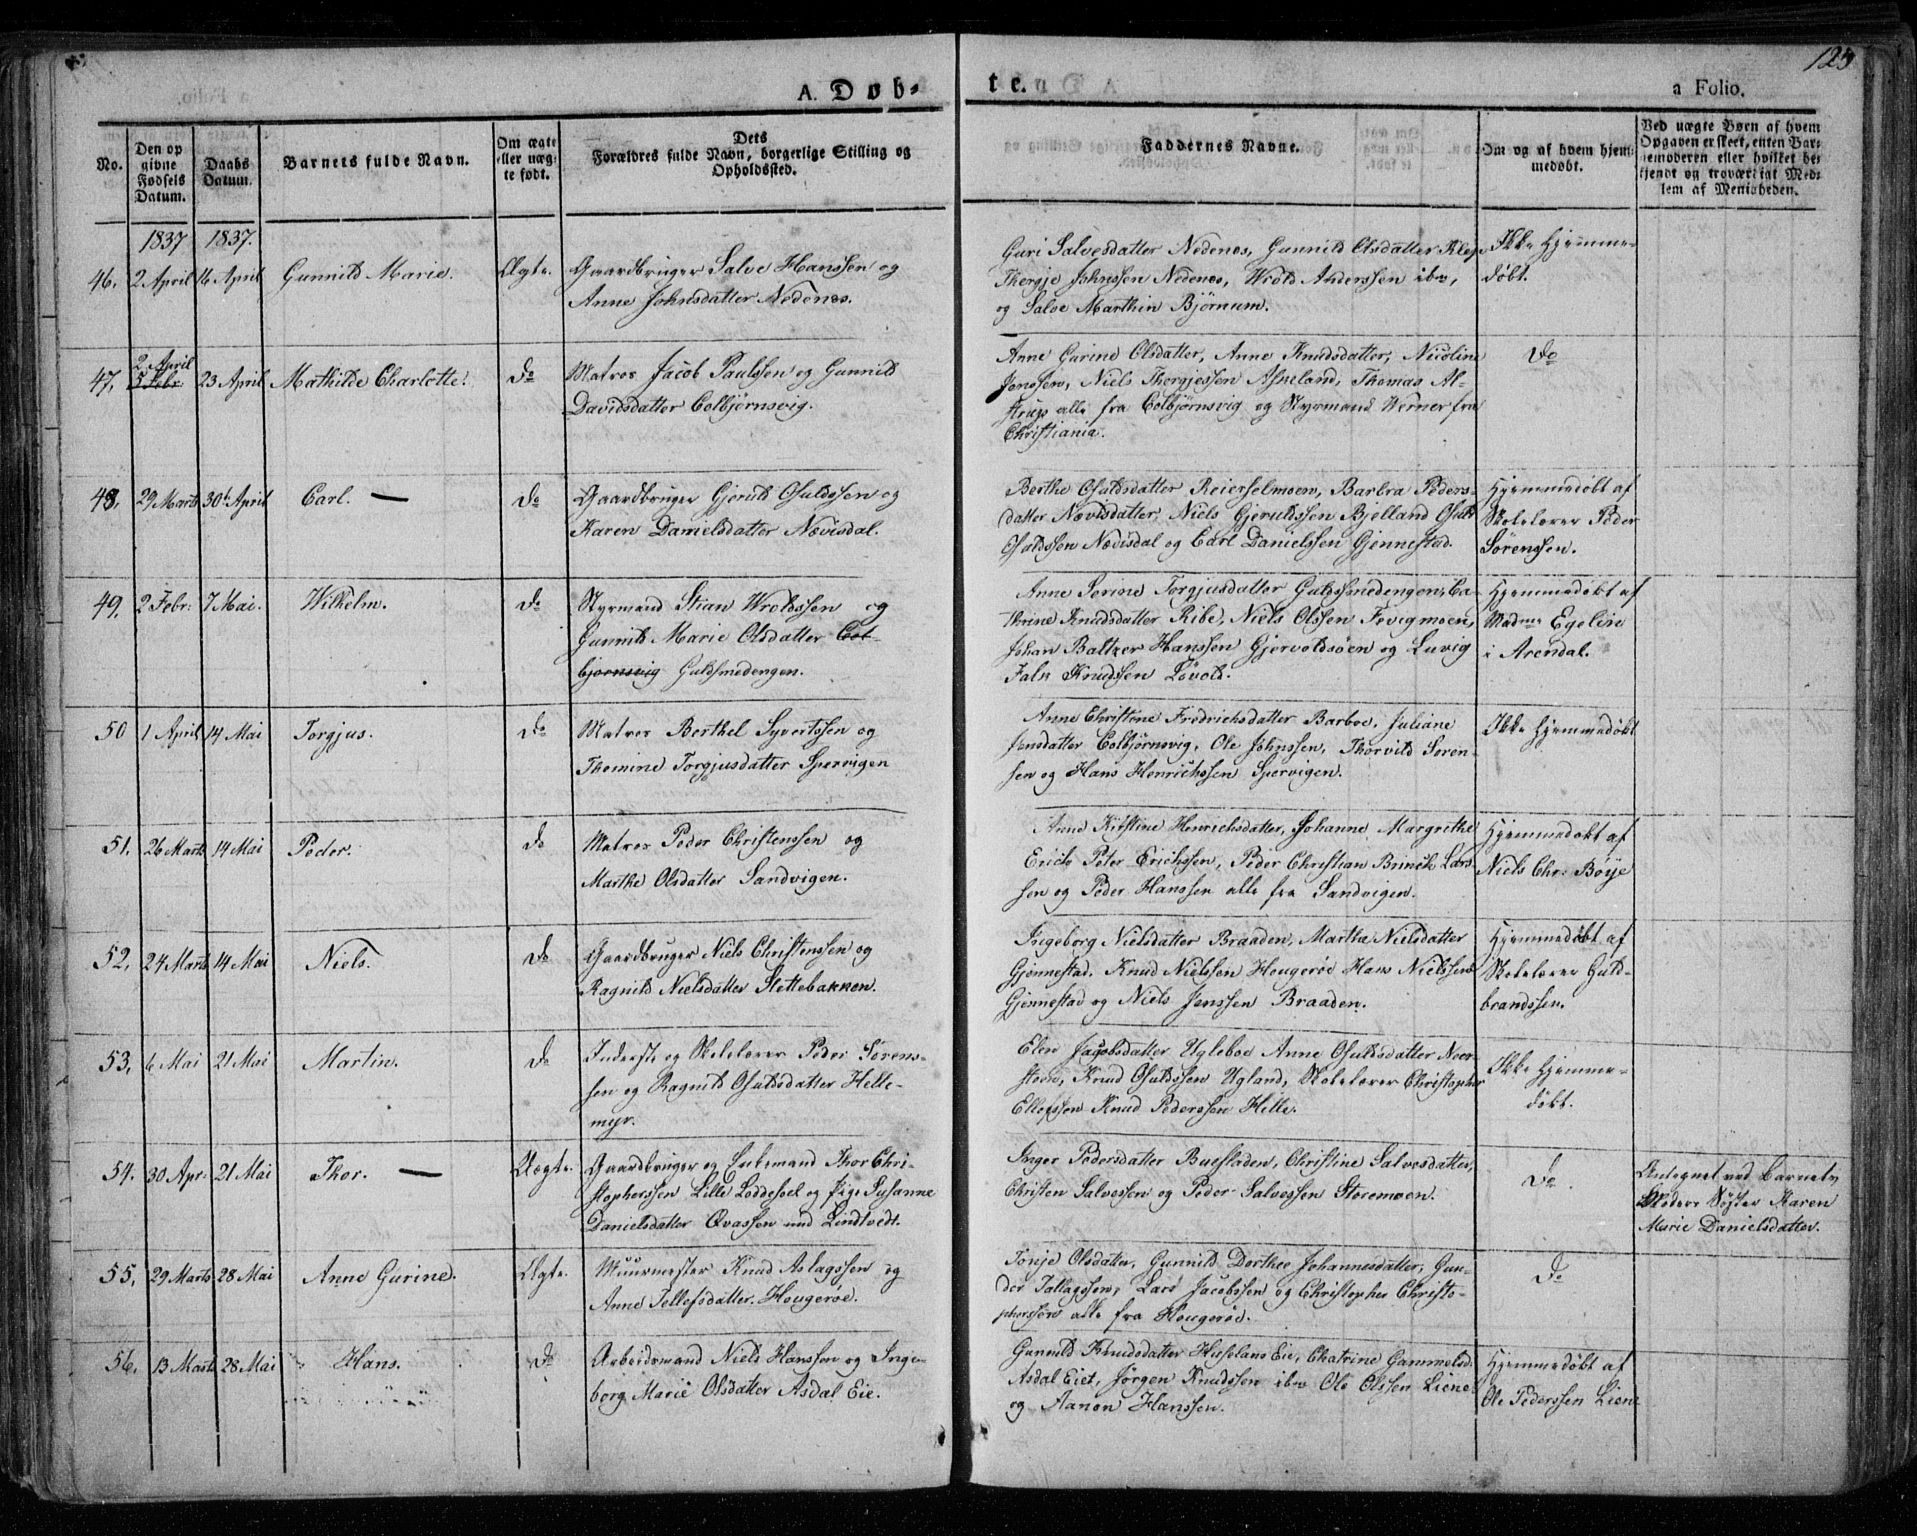 125
A. Døb-
te.
a Folio.
No.
Den op
givne
Fødsels
Datum.
Daabs
Datum.
Barnets fulde Navn.
Om ægte
eller uæg-
te født.
Dets
Forældres fulde Navn, borgerlige Stilling og
Opholdssted.
Faddernes Navne.
Om og af hvem hjem-
medøbt.
Ved uægte Børn af hvem
Opgaven er skeet, enten Bar-
nemoderen eller hvilket be-
kjendt og troværdigt Med-
lem af Menigheden.
1837 1837.
46. 2 April 16 April Gunnild Marie. Ægte. Gaardbruger Salve Hanssen og
Anne Johnsdatter Nedenes.
Guri Salvesdatter Nedenes, Gunnild Olsdatter
Thergje Johnssen Nedenes, Wrold Anderssen ibm,
og Salve Marthin Bjørnum.
Ikke Hjemme-
døbt.
47. 2. April
5 Febr 23 April Mathilde Charlotte. Do Matros Jacob Paulssen og Gunnild
Davidsdatter Colbjørnsvig.
Anne Gurine Olsdatter, Anne Knudsdatter, Nicoline
Jenssen, Niels Thergjessen Askeland, Thomas Al-
strup alle fra Colbjørnsvig og Styrmand Werner fra
Christiania.
Do
48. 29 Marts 30t April Carl. — Do Gaardbruger Gjeruld Osuldssen og
Karen Danielsdatter Nævisdal.
Berthe Osuldsdatter Reierselmoen, Barbra Peders-
datter Nævisdatter, Niels Gjeruldssen Bjelland Osuld
Osuldssen Nævisdal og Carl Danielssen Gjennestad.
Hjemmedøbt af
Skolelærer Peder
Sørenssen.
49. 2 Febr: 7 Mai. Wilhelm. Do Styrmand Stian Wroldssen og
Gunnild Marie Olsdatter Col-
bjørnsvig Guldsmedengen.
Anne Serine Torgjusdatter Guldsmedengen, Ca-
thrine Knudsdatter Ribe, Niels Olssen Fevigmoen,
Johan Baltzer Hanssen Gjervoldsøen og Luvig
Falk Knudssen Løvold.
Hjemmedøbt af
Madme Egeline
i Arendal.
50 1 April 14 Mai Torgjus. Do Matros Berthel Syvertssen og
Thomine Torgjusdatter Spervigen
Anne Christene Fredrichsdatter Barboe, Juliane
Jensdatter Colbjørnsvig, Ole Johnssen, Thorvild Soren-
sen og Hans Henrichssen Spervigen.
Ikke Hjemmedøbt
51. 26 Marts 14 Mai Peder. do Matros Peder Christenssen og
Marthe Olsdatter Sandvigen.
Anne Kirstine Henrichsdatter, Johanne Margrethe
Erichs Peter Erichssen, Peder Christian Lars-
sen og Peder Hanssen alle fra Sandvigen.
Hjemmedøbt af
Niels Chr: Bøije
52. 24 Marts 14 Mai Niels. do Gaardbruger Niels Christenssen og
Ragnild Nielsdatter Slettebakken.
Ingeborg Nielsdatter Braaden, Marthe Nielsdatter
Gjennestad. Knud Nielssen Hougerøe Hans Nielssen
Gjennestad og Niels Jenssen Braaden.
Hjemmedøbt af
Skolelærer Guld-
brandssen.
53. 6 Mai 21 Mai Martin. do Inderste og Skolelærer Peder Sørens-
sen og Ragnild Osuldsdatter Helle-
myr.
Elen Jacobsdatter Ugleboe Anne Osuldsdatter Nær-
steen, Knud Osuldssen Ugland, Skolelærer Christopher
Ellefssen Knud Pederssen Helle.
Ikke Hjemme-
døbt.
54. 30 Apr: 21 Mai Thor. — Uægte. Gaardbruger og Enkemand Thor Chri-
stopherssen Lille Løddesoel og Pige Susanne
Danielsdatter Qvassen und Lindtvedt.
Inger Pedersdatter Buesladen, Christine Salvesdatter,
Christen Salvessen og Peder Salvessen Storemoen.
Do.
Antegnet ved Barnets
Moders Søster Karen
Marie Danielsdatter.
55. 29 Marts 28 Mai Anne Gurine. Ægte. Muurmester Knud Aslagssen og
Anne Tellefsdatter Hougerøe.
Tonje Olsdatter, Gunnild Dorthea Johannesdatter, Gun-
der Tallagssen, Lars Jacobssen og Christopher Christo-
pherssen alle fra Hougerøe.
Do
56. 13 Marts 28 Mai Hans. do Arbeidsmand Niels Hanssen og Inge-
borg Marie Olsdatter Asdal Eie.
Gunuld Knudsdatter Huseland Eie, Chatrine Gammelsd:
Asdal Eiet, Jørgen Knudssen ibm Ole Olssen Liene
og Aanon Hanssen.
Hjemmedøbt af
Ole Pederssen Liene